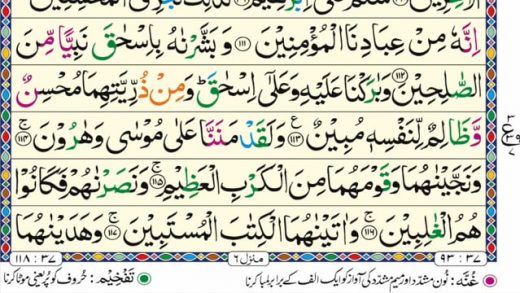 الْاٰخِرِیْنَ سَلٰمٌ عَلٰۤی اِبْرٰهِیْمَ كَذٰلِكَ نَجْزِی الْمُحْسِنِیْنَ
اِنَّهٗ مِنْ عِبَادِنَا الْمُؤْمِنِیْنَ ۱۱۱ وَ بَشَّرْنٰهُ بِاِسْحٰقَ نَبِیًّا مِّنَ
الصّٰلِحِیْنَ ۱۱۲ وَبٰرَكْنَا عَلَیْهِ وَعَلٰۤی اِسْحٰقَ ؕ وَمِنْ ذُرِّیَّتِهِمَا مُحْسِنٌ
وَّظَالِمٌ لِّنَفْسِهٖ مُبِیْنٌ ۱۱۳ ع وَلَقَدْ مَنَنَّا عَلٰی مُوْسٰی وَهٰرُوْنَ ۱۱۴ ج
وَنَجَّیْنٰهُمَا وَقَوْمَهُمَا مِنَ الْكَرْبِ الْعَظِیْمِ ۱۱۵ ج وَنَصَرْنٰهُمْ فَكَانُوْا
هُمُ الْغٰلِبِیْنَ ۱۱۶ ج وَاٰتَیْنٰهُمَا الْكِتٰبَ الْمُسْتَبِیْنَ ۱۱۷ ج وَهَدَیْنٰهُمَا
۹۳ : ۳۷
منزل ۶
۱۱۸ : ۳۷
غُنَّه: نُون مشدّد اور میم مشدّد کی آواز کو ایک الف کے برابر لمبا کرنا
تَفْخِیْم: حُروف کو پُر یعنی موٹا کرنا